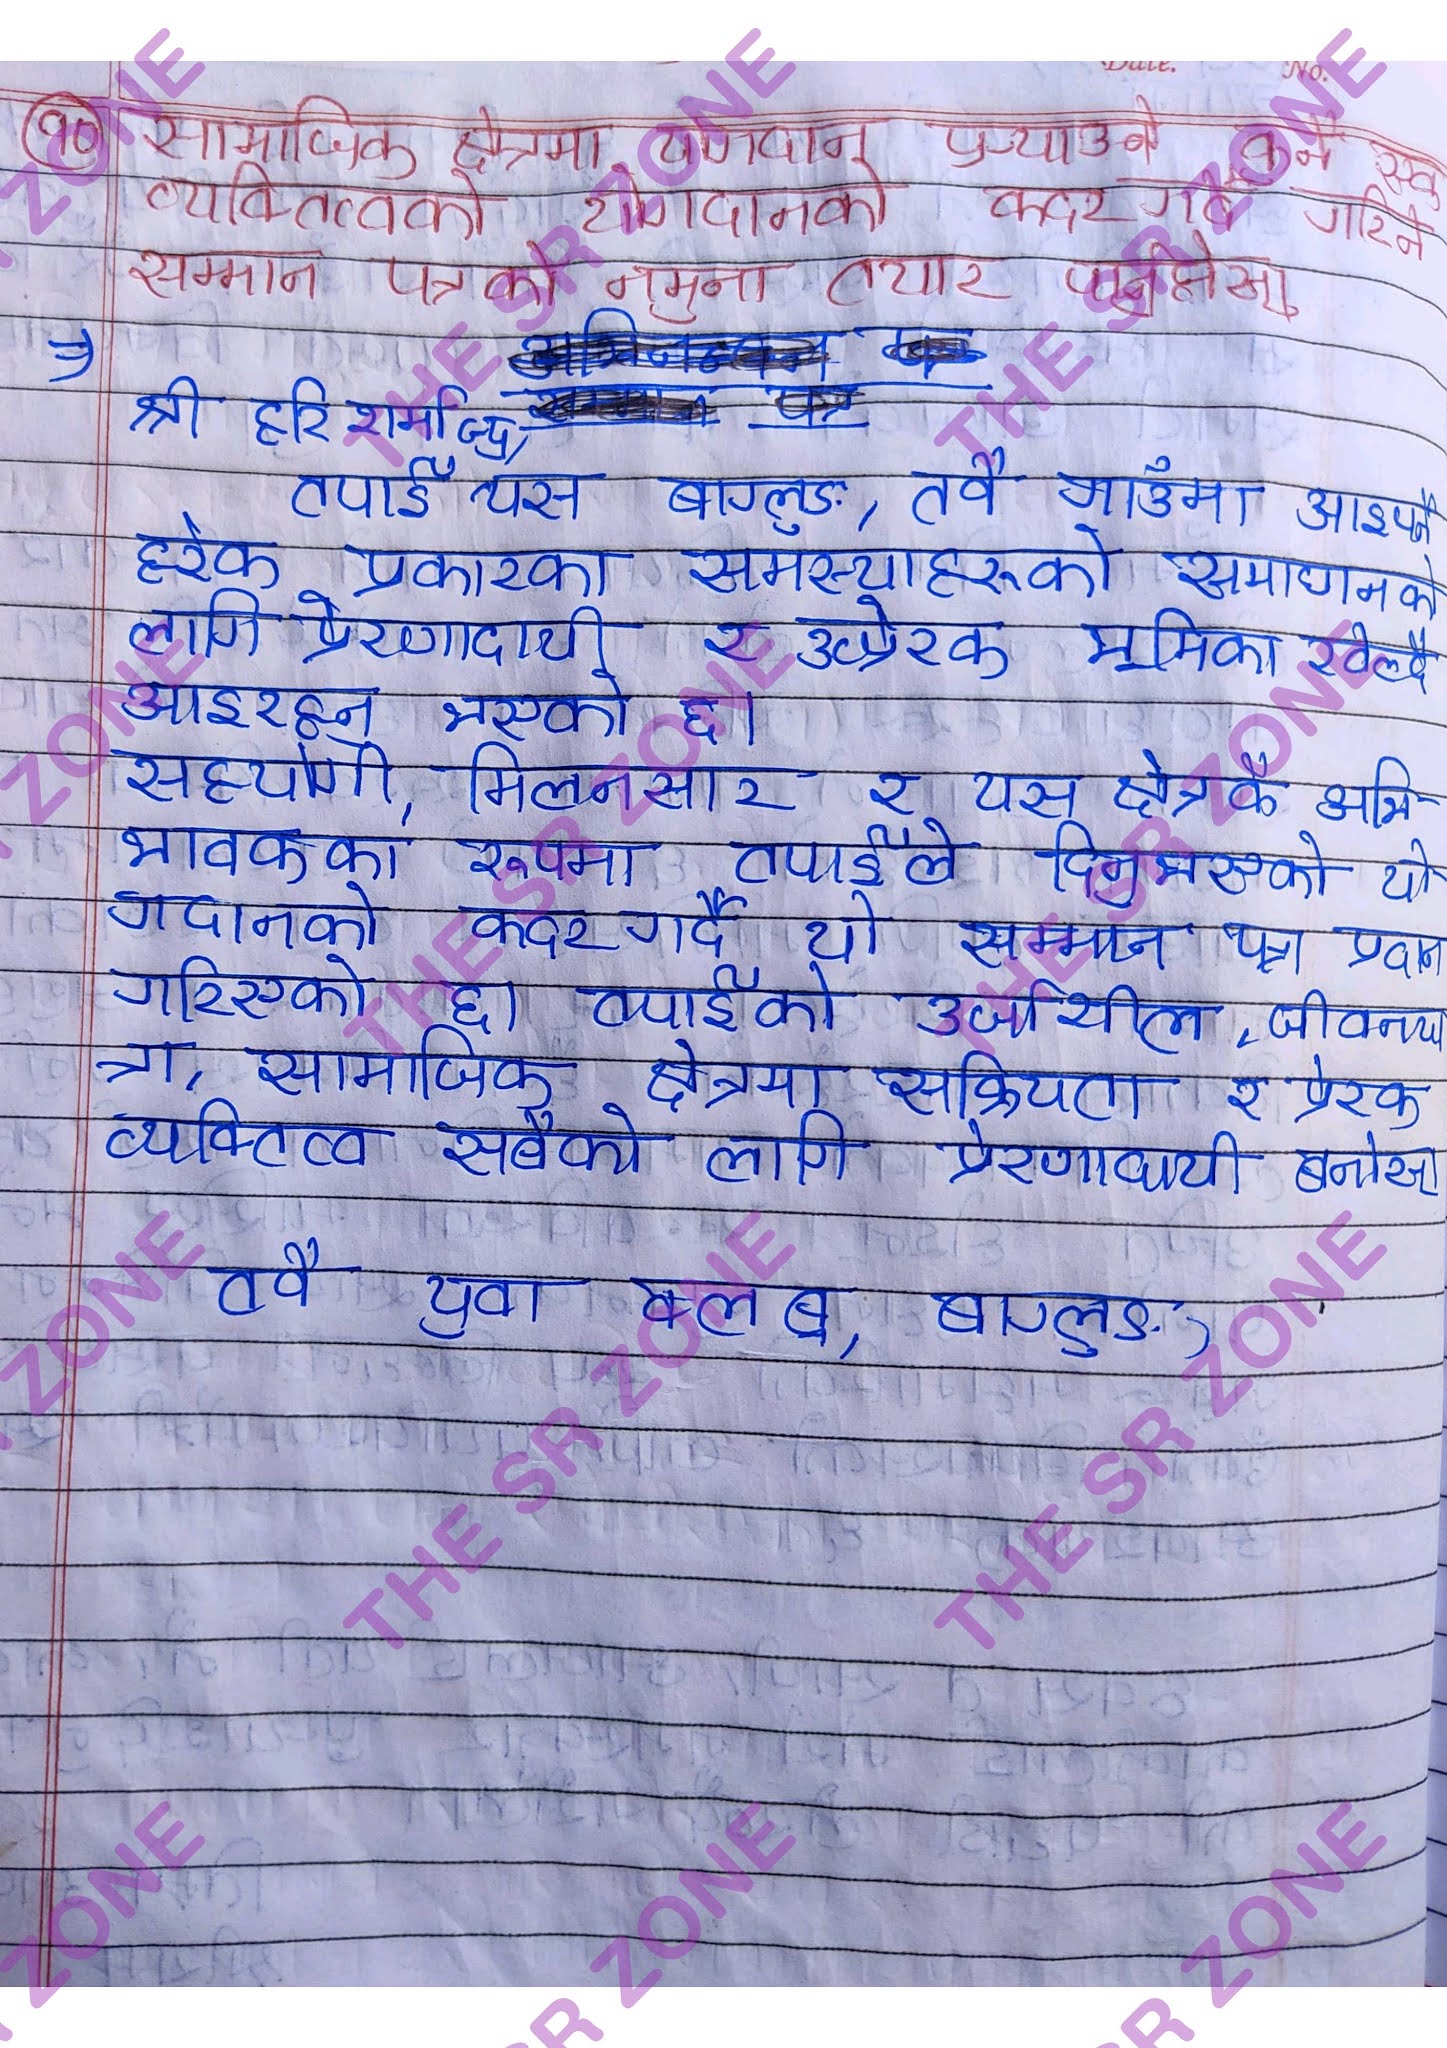 Date. No.
१० सामाजिक क्षेत्रमा योगदान पुर्‍याउने कुनै एक
व्यक्तित्वको योगदानको कदर गर्दै गरिने
सम्मान पत्रको नमुना तयार पार्नुहोस्।
⇒
श्री हरि शर्माज्यू,
तपाईँ यस बाग्लुङ, तवै गाउँमा आइपर्ने
हरेक प्रकारका समस्याहरूको समाधानको
लागि प्रेरणादायी र उत्प्रेरक भूमिका खेल्दै
आइरहनु भएको छ।
सहयोगी, मिलनसार र यस क्षेत्रकै अभि
भावकका रूपमा तपाईँले दिनुभएको यो
गदानको कदर गर्दै यो सम्मान पत्र प्रदान
गरिएको छ। तपाईँको उर्जाशील, जीवनया
त्रा, सामाजिक क्षेत्रमा सक्रियता र प्रेरक
व्यक्तित्व सबैको लागि प्रेरणादायी बनोस्।
तवै युवा क्लब, बाग्लुङ,
THE SR ZONE